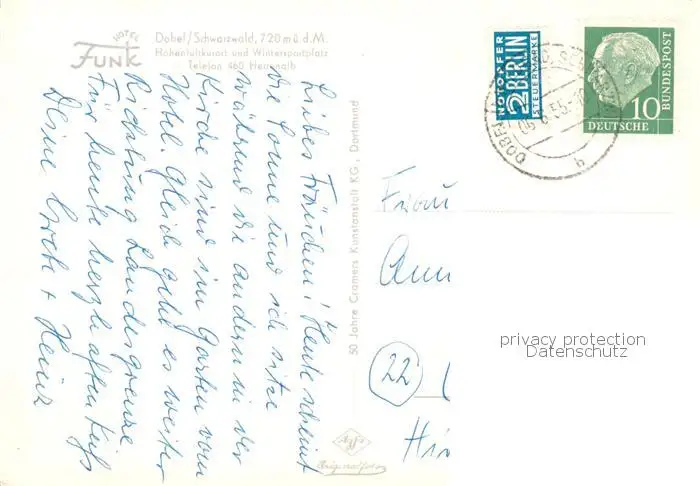 HOTEL
FUNK
Dobel/Schwarzwald, 720 m ü. d. M.
Höhenluftkurort und Wintersportplatz
Telefon 460 Herrenalb
Liebes Frauchen! Heute scheint
die Sonne und ich sitze
während die andern in der
Kirche sind im Garten vom
Hotel. Gleich geht es weiter
Richtung Landesgrenze
Für heute herzhaften Kuß
Deine + Heinz
50 Jahre Cramers Kunstanstalt KG., Dortmund
NOTOPFER
2 BERLIN
STEUERMARKE
10
DEUTSCHE
BUNDESPOST
DOBEL
b
Frau
Ann
22
Hin
Agfa
privacy protection
Datenschutz